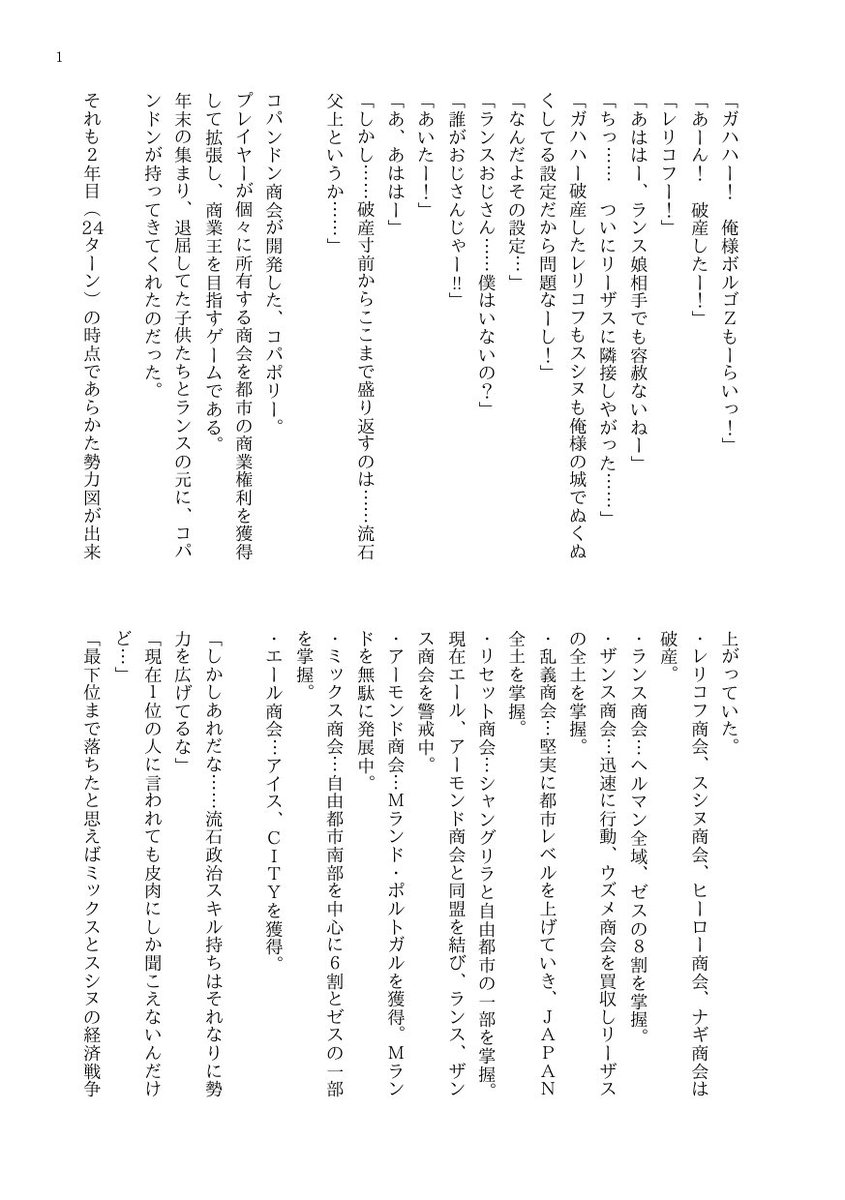 1
「ガハハー！　俺様ボルゴZもーらいっ！」
「あーん！　破産したー！」
「レリコフー！」
「あははー、ランス娘相手でも容赦ないねー」
「ちっ……　ついにリーザスに隣接しやがった……」
「ガハハー破産したレリコフもスシヌも俺様の城でぬくぬ
くしてる設定だから問題なーし！」
「なんだよその設定…」
「ランスおじさん……僕はいないの？」
「誰がおじさんじゃー!!」
「あいたー！」
「あ、あははー」
「しかし……破産寸前からここまで盛り返すのは……流石
父上というか……」
コパンドン商会が開発した、コパポリー。
プレイヤーが個々に所有する商会を都市の商業権利を獲得
して拡張し、商業王を目指すゲームである。
年末の集まり、退屈してた子供たちとランスの元に、コパ
ンドンが持ってきてくれたのだった。
それも２年目（24ターン）の時点であらかた勢力図が出来
上がっていた。
・レリコフ商会、スシヌ商会、ヒーロー商会、ナギ商会は
破産。
・ランス商会…ヘルマン全域、ゼスの８割を掌握。
・ザンス商会…迅速に行動、ウズメ商会を買収しリーザス
の全土を掌握。
・乱義商会…堅実に都市レベルを上げていき、ＪＡＰＡＮ
全土を掌握。
・リセット商会…シャングリラと自由都市の一部を掌握。
現在エール、アーモンド商会と同盟を結び、ランス、ザン
ス商会を警戒中。
・アーモンド商会…Ｍランド・ポルトガルを獲得。Ｍラン
ドを無駄に発展中。
・ミックス商会…自由都市南部を中心に６割とゼスの一部
を掌握。
・エール商会…アイス、ＣＩＴＹを獲得。
「しかしあれだな……流石政治スキル持ちはそれなりに勢
力を広げてるな」
「現在１位の人に言われても皮肉にしか聞こえないんだけ
ど…」
「最下位まで落ちたと思えばミックスとスシヌの経済戦争